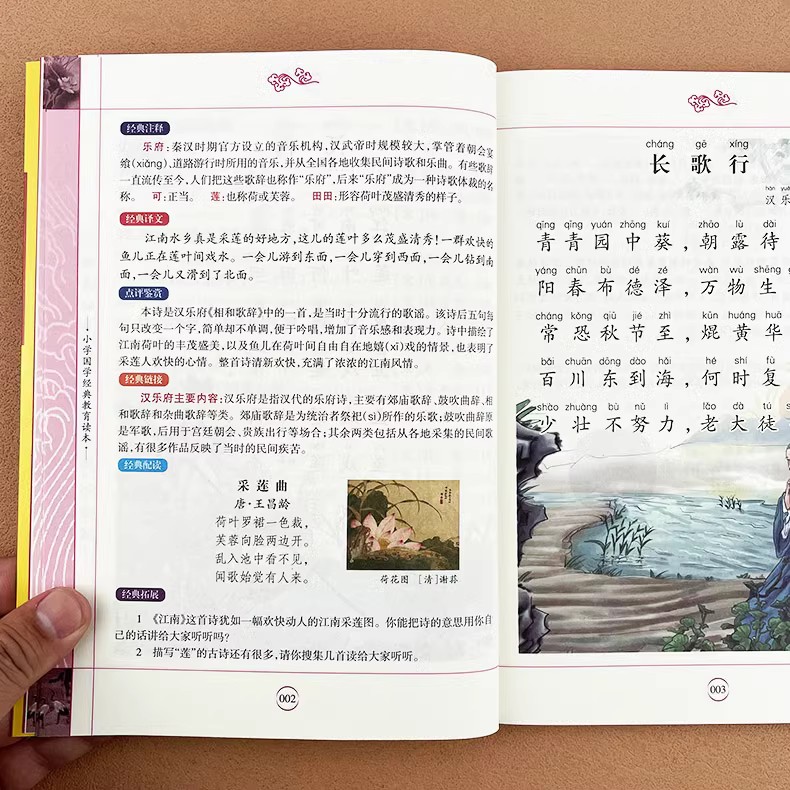 经典注释
乐府：秦汉时期官方设立的音乐机构，汉武帝时规模较大，掌管着朝会宴
飨(xiǎng)、道路游行时所用的音乐，并从全国各地收集民间诗歌和乐曲。有些歌辞
一直流传至今，人们把这些歌辞也称作“乐府”，后来“乐府”成为一种诗歌体裁的名
称。 可：正当。 莲：也称荷或芙蓉。 田田：形容荷叶茂盛清秀的样子。
经典译文
江南水乡真是采莲的好地方，这儿的莲叶多么茂盛清秀！一群欢快的
鱼儿正在莲叶间戏水。一会儿游到东面，一会儿穿到西面，一会儿钻到南
面，一会儿又滑到了北面。
点评鉴赏
本诗是汉乐府《相和歌辞》中的一首，是当时十分流行的歌谣。该诗后五句每
句只改变一个字，简单却不单调，便于吟唱，增加了音乐感和表现力。诗中描绘了
江南荷叶的丰茂盛美，以及鱼儿在荷叶间自由自在地嬉(xī)戏的情景，也表明了
采莲人欢快的心情。整首诗清新欢快，充满了浓浓的江南风情。
经典链接
汉乐府主要内容：汉乐府是指汉代的乐府诗，主要有郊庙歌辞、鼓吹曲辞、相
和歌辞和杂曲歌辞等类。郊庙歌辞是为统治者祭祀(sì)所作的乐歌；鼓吹曲辞原
是军歌，后用于宫廷朝会、贵族出行等场合；其余两类包括从各地采集的民间歌
谣，有很多作品反映了当时的民间疾苦。
经典配读
采莲曲
唐·王昌龄
荷叶罗裙一色裁，
芙蓉向脸两边开。
乱入池中看不见，
闻歌始觉有人来。
荷花图 ［清］谢荪
经典拓展
1 《江南》这首诗犹如一幅欢快动人的江南采莲图。你能把诗的意思用你自
己的话讲给大家听听吗？
2 描写“莲”的古诗还有很多，请你搜集几首读给大家听听。
002
小学国学经典教育读本
cháng gē xíng
长歌行
hàn yuè
汉乐
qīng qīng yuán zhōng kuí zhāo lù dài
青青园中葵，朝露待
yáng chūn bù dé zé wàn wù shēng
阳春布德泽，万物生
cháng kǒng qiū jié zhì kūn huáng huā
常恐秋节至，焜黄华
bǎi chuān dōng dào hǎi hé shí fù
百川东到海，何时复
shào zhuàng bù nǔ lì lǎo dà tú
少壮不努力，老大徒
003